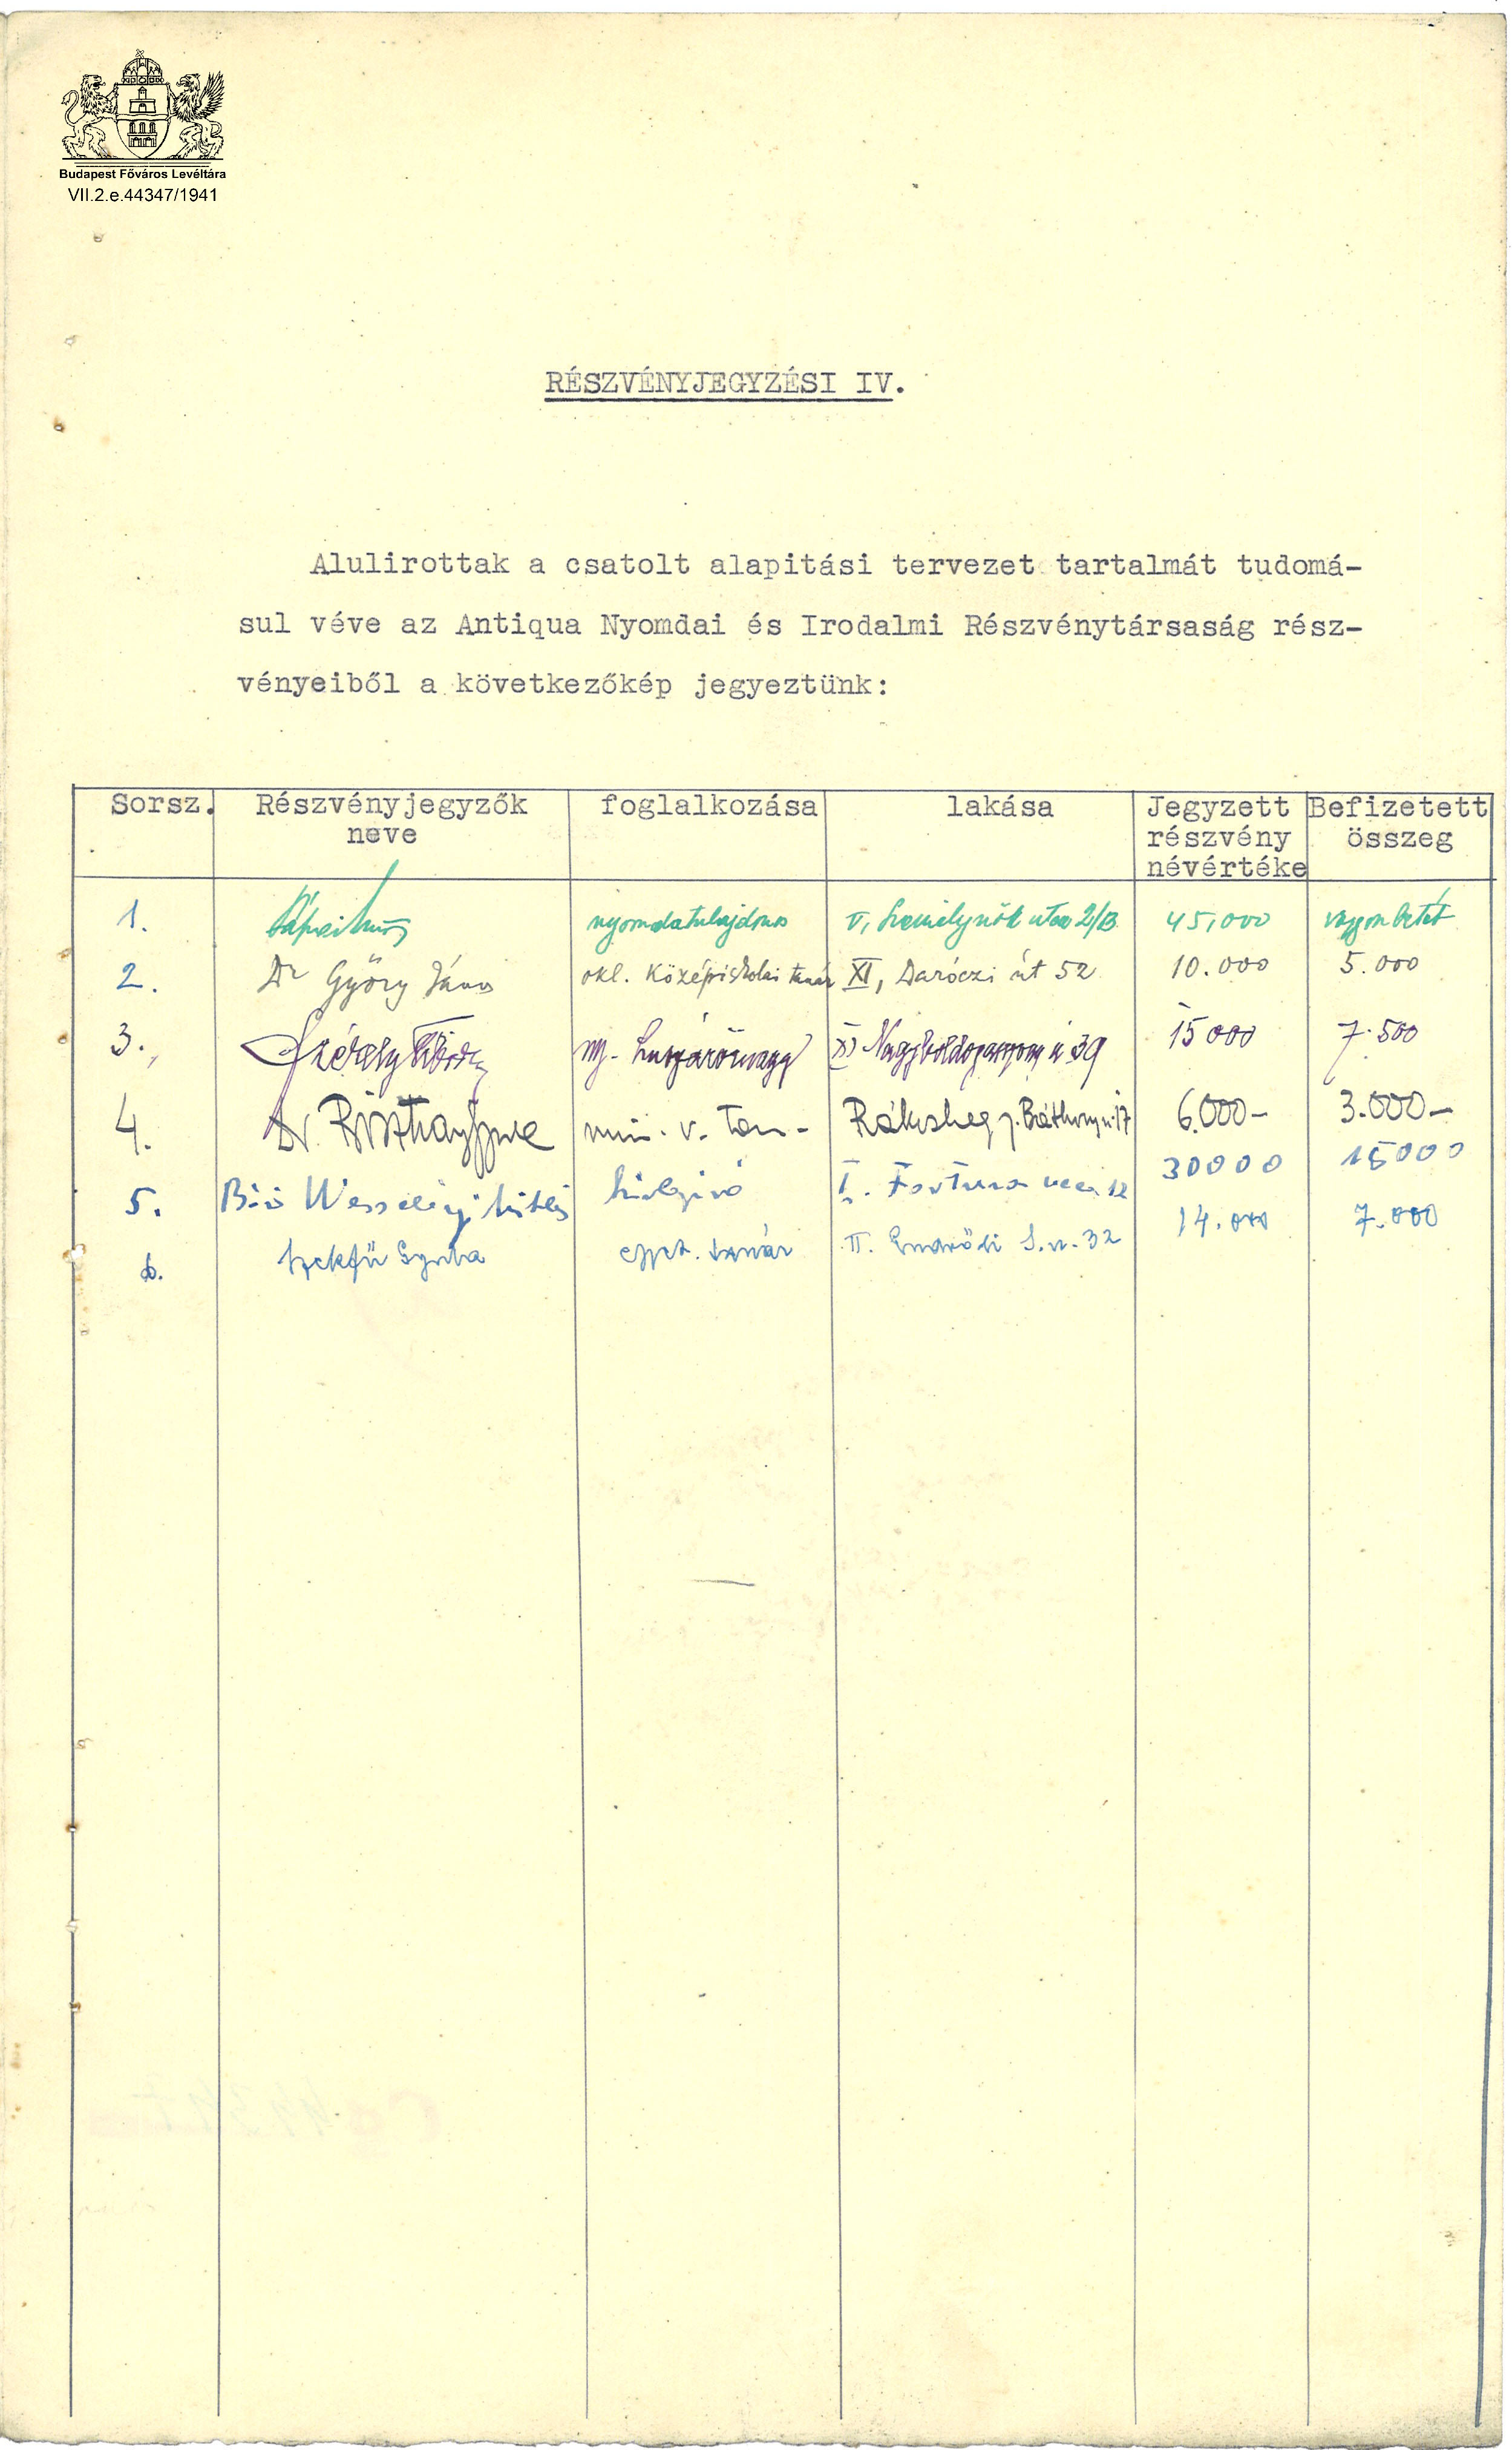 Budapest Főváros Levéltára
VII.2.e.44347/1941
RÉSZVÉNYJEGYZÉSI IV.
Alulirottak a csatolt alapitási tervezet tartalmát tudomá-
sul véve az Antiqua Nyomdai és Irodalmi Részvénytársaság rész-
vényeiből a következőkép jegyeztünk:
Sorsz. Részvényjegyzők neve foglalkozása lakása Jegyzett részvény névértéke Befizetett összeg
1. nyomdatulajdonos V, Személynök utca 2/B 45,000 vagyonbetét
2. Dr Győry János okl. középiskolai tanár XI, Daróczi út 52 10.000 5.000
3. ny. huszárőrnagy XI Nagyboldogasszony u 39 15000 7.500
4. Dr. min. v. tan- Rákosliget 6.000- 3.000-
5. Bíró Wesselényi I. Fortuna 12 30000 15000
6. Szekfű Gyula egyet. tanár II. Endrődi S. u. 32 14.000 7.000